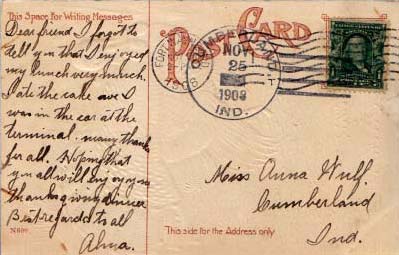 This Space for Writing Messages
Dear friend. I forgot to
tell you that I enjoyed
my lunch very much.
I ate the cake as I
was in the car at the
terminal. many thanks
for all. Hoping that
you all will enjoy your
thanksgiving dinner
Best regards to all
Alma.
N600
POST CARD
CUMBERLAND
NOV
25
1908
IND.
FORT
1908
Miss Anna Wulf.
Cumberland
Ind.
This side for the Address only